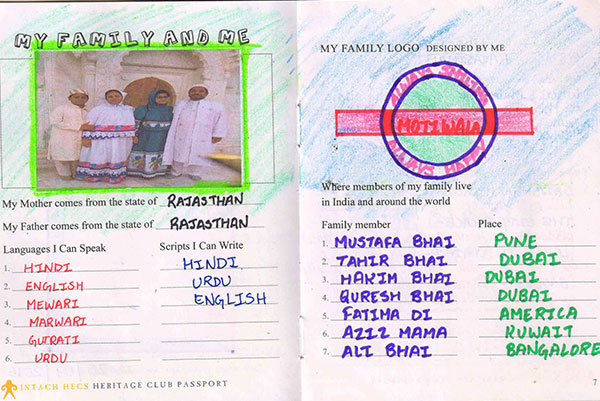 MY FAMILY AND ME
My Mother comes from the state of RAJASTHAN
My Father comes from the state of RAJASTHAN
Languages I Can Speak
1. HINDI
2. ENGLISH
3. MEWARI
4. MARWARI
5. GUTRATI
6. URDU
Scripts I Can Write
HINDI
URDU
ENGLISH
INTACH HECS HERITAGE CLUB PASSPORT
MY FAMILY LOGO DESIGNED BY ME
ALWAYS SMILING
MOTIWALA
ALWAYS HAPPY
Where members of my family live
in India and around the world
Family member Place
1. MUSTAFA BHAI PUNE
2. TAHIR BHAI DUBAI
3. HAKIM BHAI DUBAI
4. QURESH BHAI DUBAI
5. FATIMA DI AMERICA
6. AZIZ MAMA KUWAIT
7. ALI BHAI BANGALORE
7